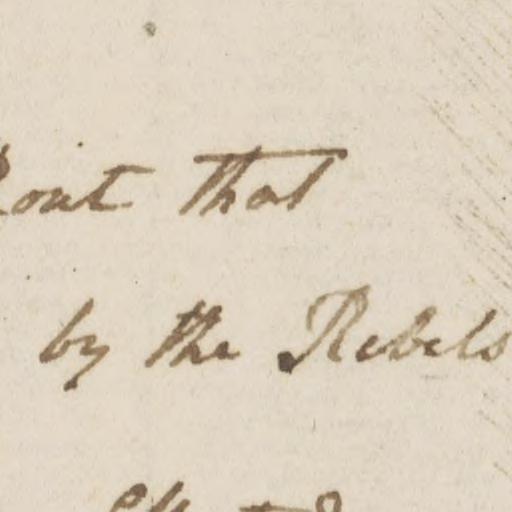 that
by the Rebels